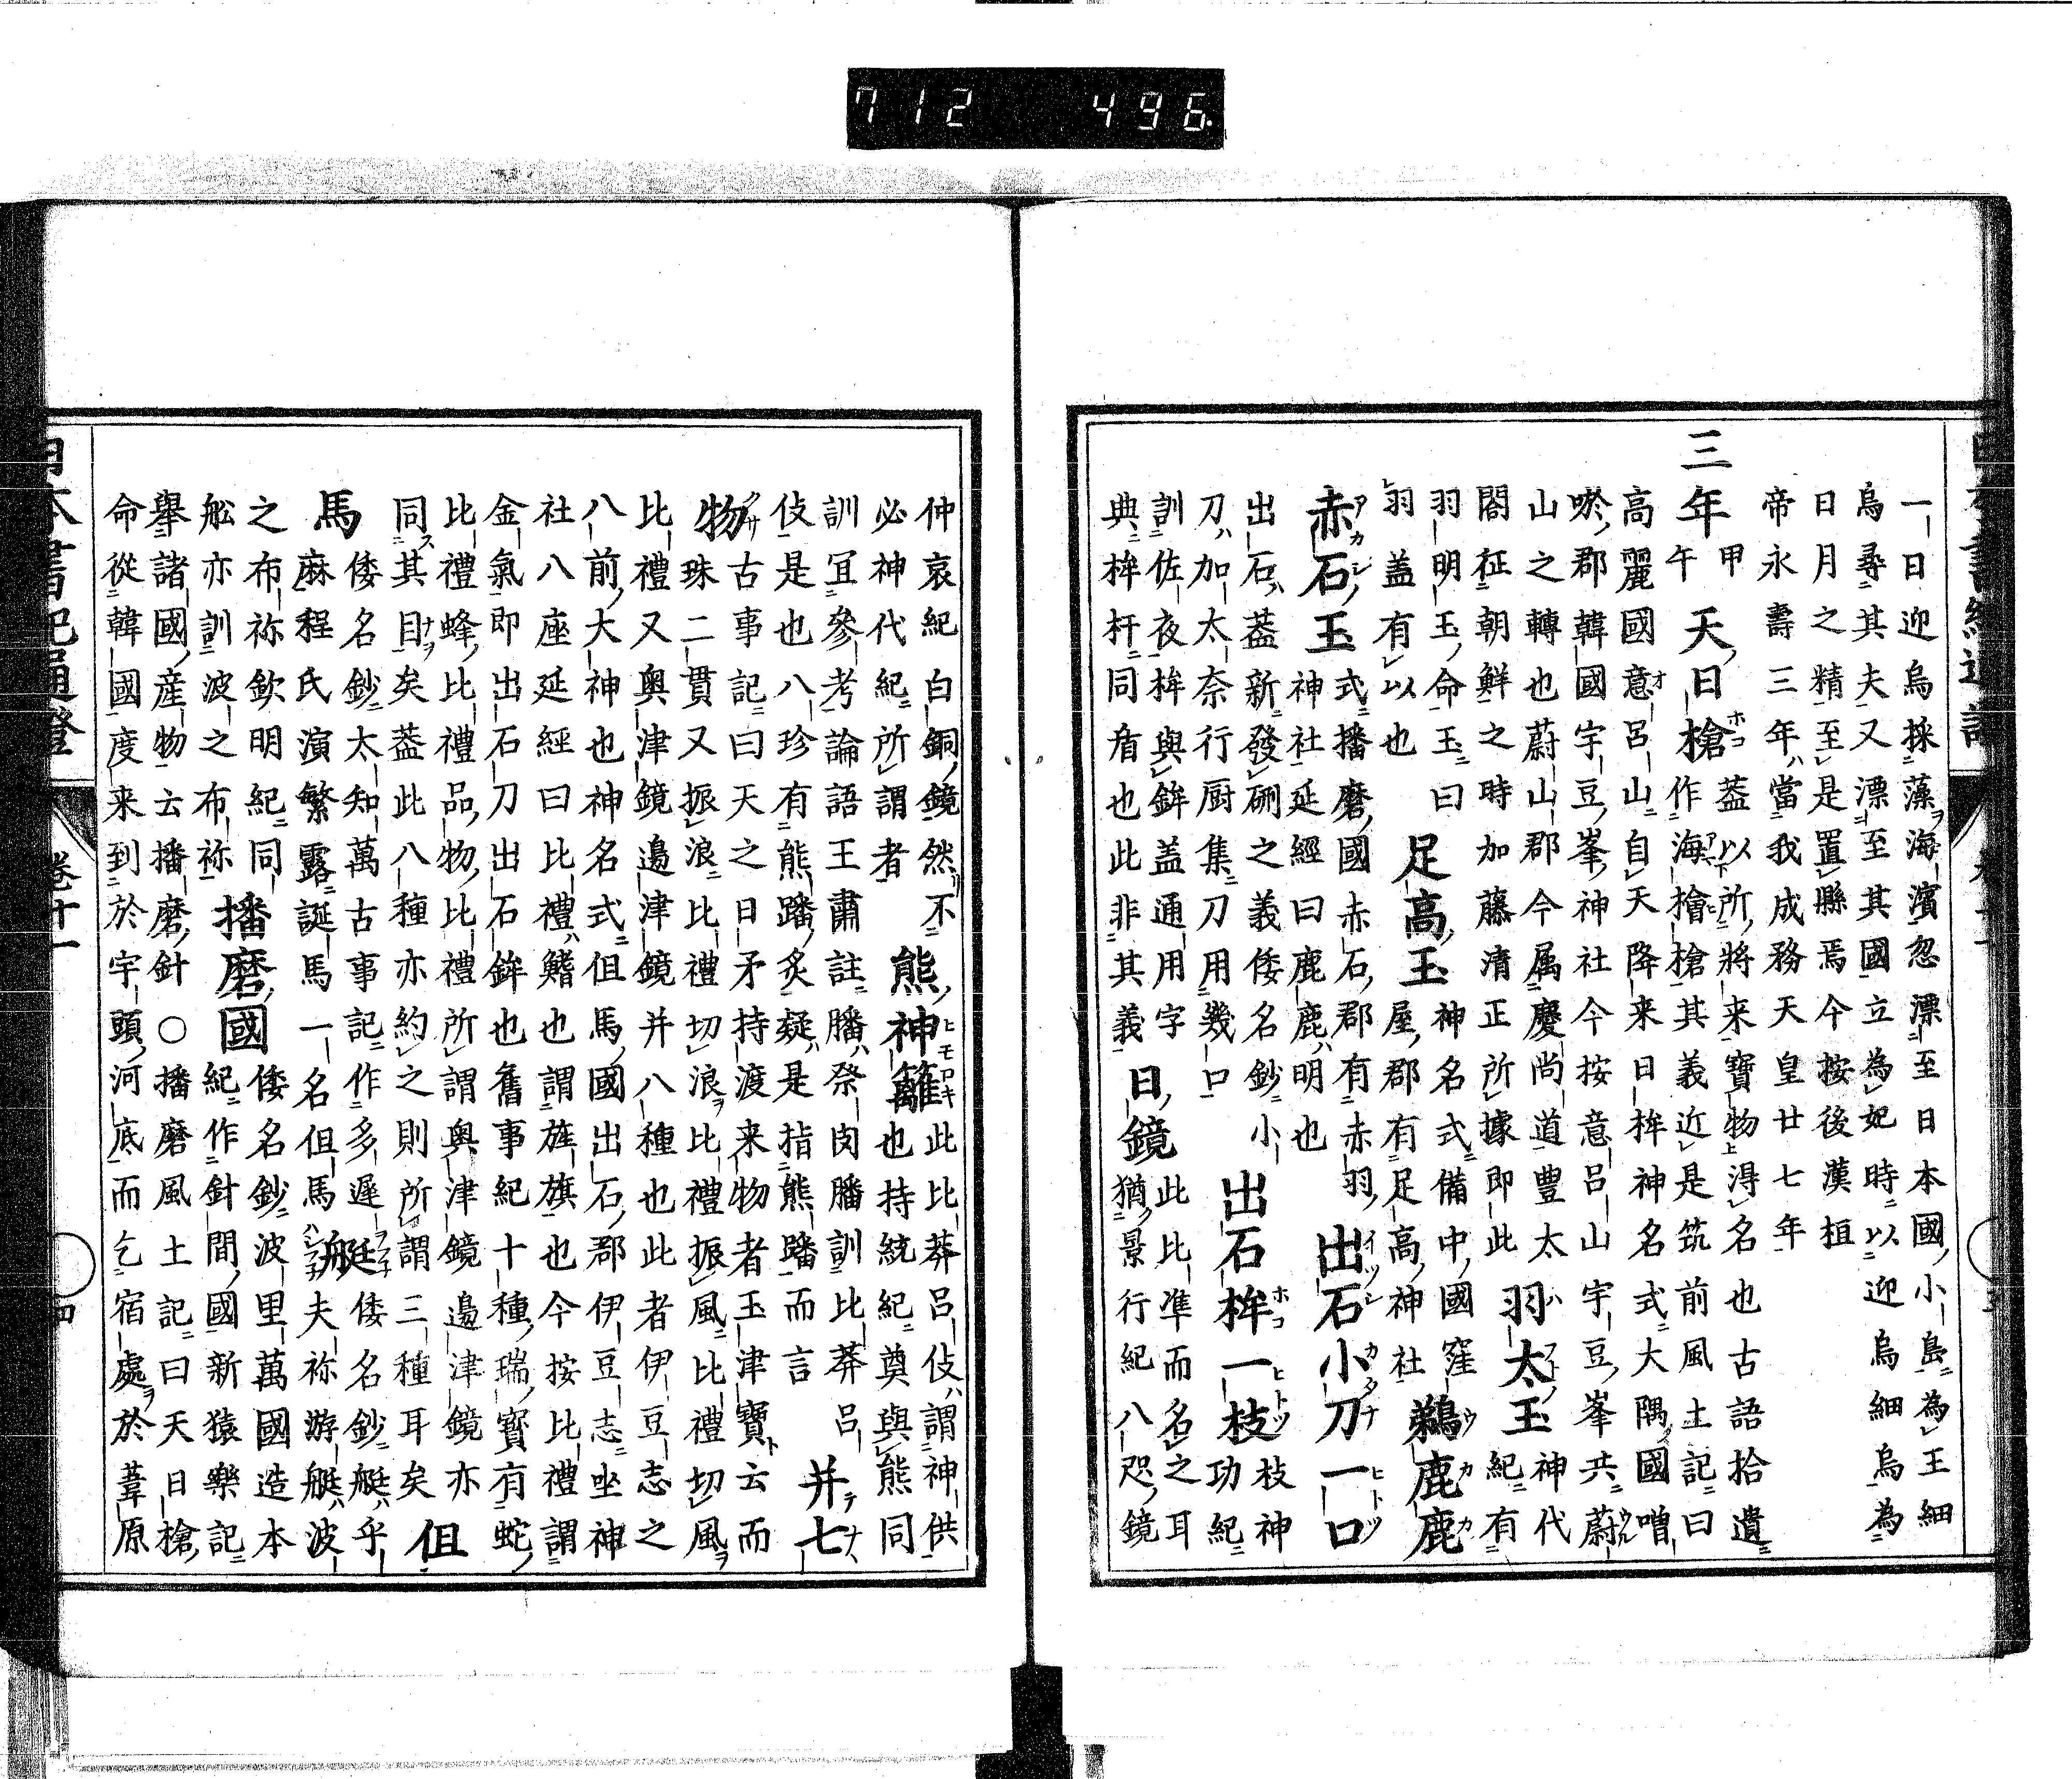 712 496
一日迎烏採藻海濱忽漂至日本國小島為王細
烏尋其夫又漂至其國立為妃時以迎烏細烏為
日月之精至是置縣焉今按後漢桓
帝永壽三年當我成務天皇廿七年
三年甲午天日槍蓋以所將来寶物得名也古語拾遺
作海檜槍其義近是筑前風土記曰
高麗國意呂山自天降来日桙神名式大隅國噌
唹郡韓國宇豆峯神社今按意呂山宇豆峯共蔚
山之轉也蔚山郡今属慶尚道豊太
閤征朝鮮之時加藤清正所據即此羽太玉神代紀有
羽明玉命玉曰
羽盖有以也足高玉神名式備中國窪屋郡有足高神社鵜鹿鹿
赤石玉式播磨國赤石郡有赤羽
神社延經曰鹿鹿明也出石小刀一口
出石蓋新發硎之義倭名鈔小
刀加太奈行厨集刀用幾口出石桙一枝枝神功紀
訓佐夜桙與鉾盖通用字
典桙杆同盾也此非其義日鏡此比準而名之耳
猶景行紀八咫鏡
仲哀紀白銅鏡然不
必神代紀所謂者熊神籬此比莽呂伎謂神供
也持統紀奠與熊同
訓冝參考論語王肅註膰祭肉膰訓比莽呂
伎是也八珍有熊蹯炙疑是指熊蹯而言并七
物古事記曰天之日矛持渡来物者玉津寶云而
珠二貫又振浪比禮切浪比禮振風比禮切風
比禮又奥津鏡邊津鏡并八種也此者伊豆志之
八前大神也神名式但馬國出石郡伊豆志坐神
社八座延經曰比禮鰭也謂旌旗也今按比禮謂
金氣即出石刀出石鉾也舊事紀十種瑞寶有蛇
比禮蜂比禮品物比禮所謂與津鏡邊津鏡亦
同其目矣蓋此八種亦約之則所謂三種耳矣但
馬倭名鈔太知萬古事記作多遲
麻程氏演繁露誕馬一名但馬艇倭名鈔艇乎
夫袮游艇波
之布袮欽明紀同
舩亦訓波之布袮播磨國倭名鈔波里萬國造本
紀作針間國新猿樂記
擧諸國産物云播磨針○播磨風土記曰天日槍
命從韓國度来到於宇頭河底而乞宿處於葦原